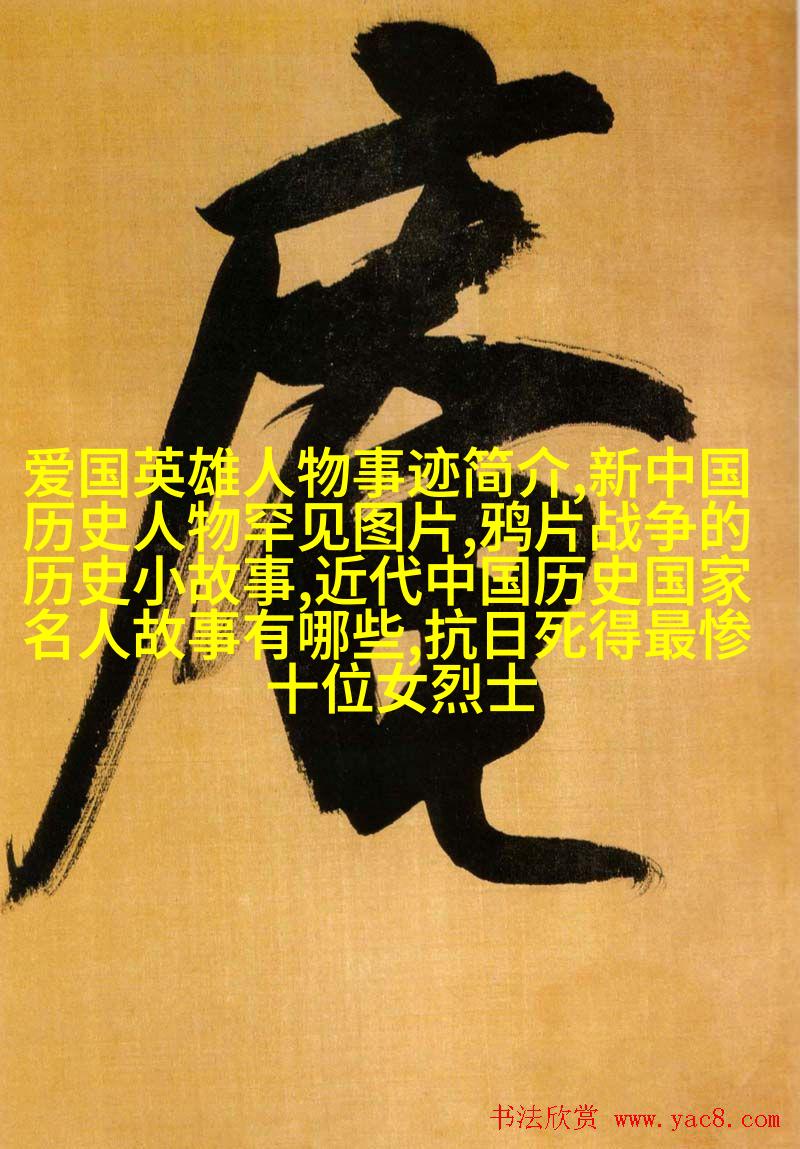 庵
爱国英雄人物事迹简介,新中国
历史人物罕见图片,鸦片战争的
历史小故事,近代中国历史国家
名人故事有哪些,抗日死得最惨
十位女烈士
书法欣赏 www.yac8.com